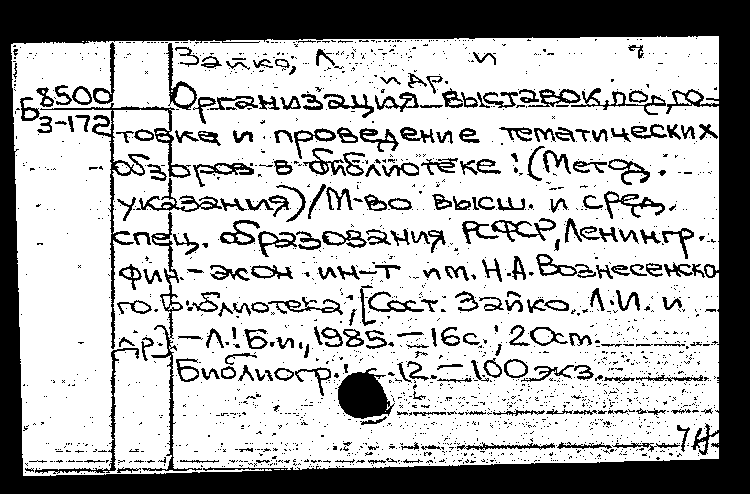 Зайко, Л И
и др.
Б8500
З-172
Организация выставок, подго-
товка и проведение тематических
обзоров в библиотеке: (Метод.
указания)/М-во высш. и сред.
спец. образования РСФСР, Ленингр.
фин.-экон. ин-т им. Н.А. Вознесенско-
го. Библиотека; [Сост. Зайко Л.И. и
др.] - Л.: Б.и., 1985. - 16с.; 20см.
Библиогр.: с.12. - 100 экз.